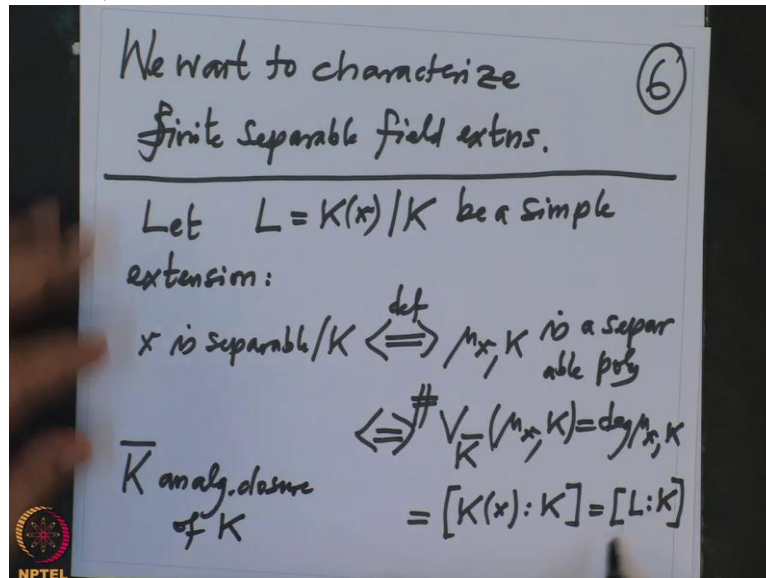 We want to characterize
finite separable field extns.
6
Let L = K(x) | K be a simple
extension:
x is separable/K <=>^{def} μ_{x,K} is a separ
able poly
<=> # V_{K̄}(μ_{x,K}) = deg μ_{x,K}
K̄ an alg. closure
of K
= [K(x) : K] = [L : K]
NPTEL